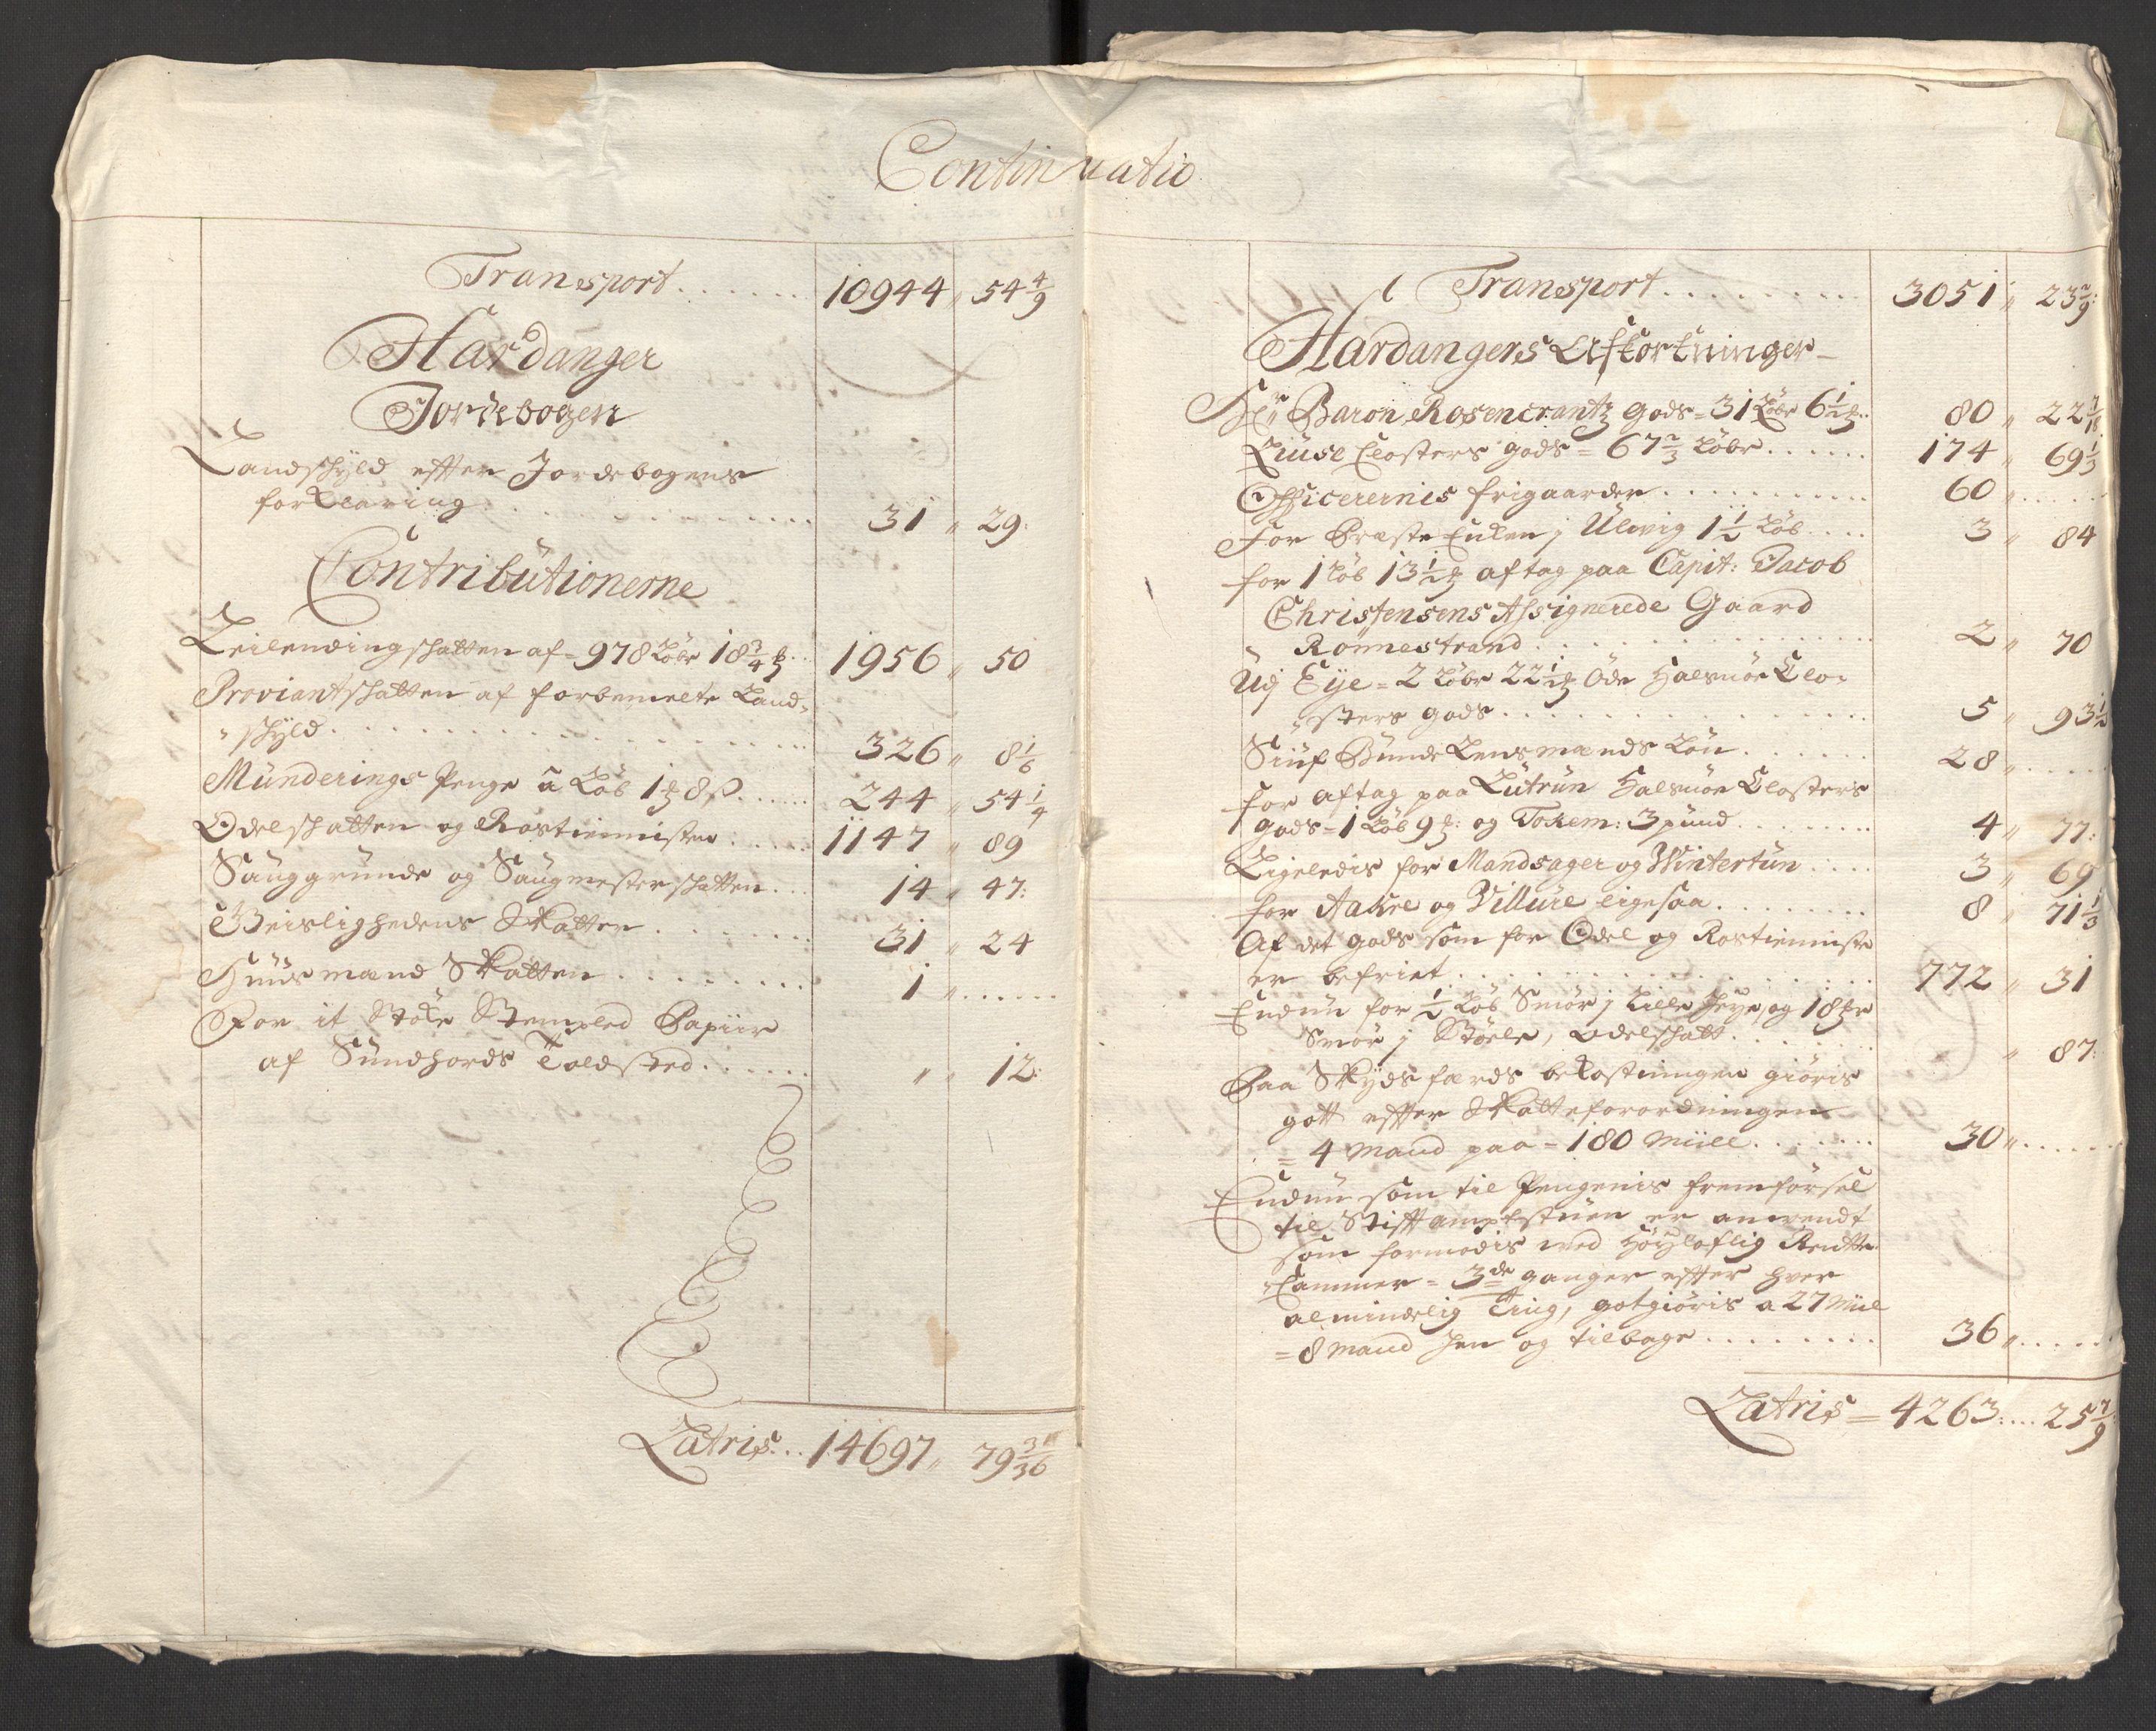 Continuatio
Transport . . . . . . 10944 „ 54 4/9
Hardanger
Jordebogen
Landschÿld effter Jordebogens
forklaring . . . . . . . . 31 „ 29:
Contributionerne
Leilendingschatten af = 978 Løbe 18 3/4 . . 1956 „ 50
Proviantschatten af forbemelte Land-
„schÿld . . . . . . . . . 326 „ 8 1/6
Münderings Penge â Løb 1 8 ß . . . . . 244 „ 54 1/4
Odelschatten og Rostienniste . . . . . 1147 „ 89
Sauggrunde og Saugmesterschatten . . . 14 „ 47:
Geislighedens Skatter . . . . . . . 31 „ 24
Huusmænd Skatten . . . . . . . . 1 „ . . . . . .
For it Støke Stempled Papiir
af Sundhords Toldsted . . . . . . „ „ 12:
Latris . . . 14697 „ 79 31/36
Transport . . . . . . . . . 3051 „ 23 2/9:
Hardangers Afkortninger
Hr: Baron Rosencrantz gods = 31 Løbe 6 1/2 . . 80 „ 22 7/18
Liuse Closters gods = 67 2/3 Løbe . . . . . . 174 „ 69 1/3
Officerernis frigaarder . . . . . . . . . . . 60 „ . . . . .
For Præste Enken j Ulwig 1 1/2 Løb . . . . 3 „ 84
for 1 Løb 13 1/2 aftag paa Capit: Jacob
Christensens Assignerede Gaard
Rønnestrand . . . . . . . . . . . . . . 2 „ 70
Udj Eÿe = 2 Løbe 22 1/2 Øde Halsnøe Clo-
„sters gods . . . . . . . . . . . . . . . 5 „ 93 1/2
Siuf Bunde Lensmænds Løn . . . . . . 28 „ . . . . .
for aftag paa Lutrun Halsnøe Closters
gods = 1 Løb 9 : og Tokem: 3 pund . . . . . . . . 4 „ 77:
Ligeledis for Mandsager og Wintertun . . . . 3 „ 69
for Aakre og Villure ligesaa . . . . . . . . 8 „ 71 1/3
Af det gods som for Odel og Rostienniste
er befriet . . . . . . . . . . . . . 772 „ 31
Endnu for 1/2 Løb Smør j Lille , og 18
Smør j Støele, Odelschatt . . . . . . . „ 87:
Paa Skÿdsfærds bekostningen giøris
gott effter Skatteforordningen
= 4 Mand paa = 180 Miile . . . . . . . 30 „ . . . . .
Endnu som til Pengenis fremførsel
til Stifftamptstuen er anvendt
som formodis ved Høÿloflig Rentte
„Cammer = 3de ganger effter hver
almindelig Ting, gotgiøris a 27 Miil
= 8 Mand hen og tilbage . . . . . . . . . 36 „ . . . . .
Latris = 4263: . . . . 25 7/9